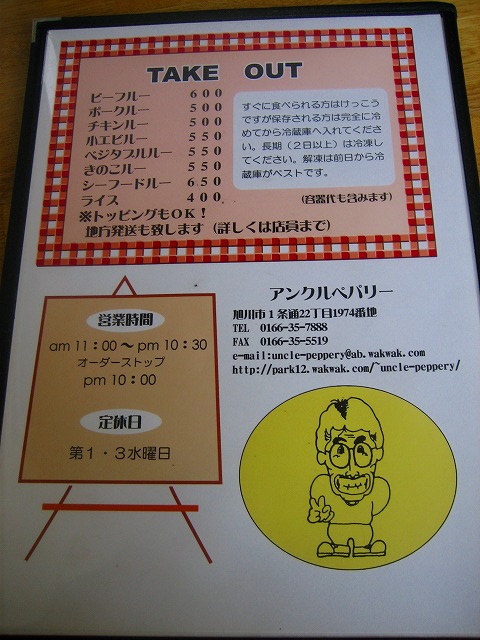 TAKE OUT
ビーフルー 600
ポークルー 500
チキンルー 500
小エビルー 550
ベジタブルルー 550
きのこルー 550
シーフードルー 650
ライス 400
※トッピングもOK！
地方発送も致します（詳しくは店員まで）
すぐに食べられる方はけっこう
ですが保存される方は完全に冷
めてから冷蔵庫へ入れてくださ
い。長期（２日以上）は冷凍し
てください。解凍は前日から冷
蔵庫がベストです。
（容器代も含みます）
営業時間
am 11：00～pm 10：30
オーダーストップ
pm 10：00
定休日
第１・３水曜日
アンクルペパリー
旭川市１条通22丁目1974番地
TEL 0166-35-7888
FAX 0166-35-5519
e-mail:uncle-peppery@ab.wakwak.com
http://park12.wakwak.com/~uncle-peppery/